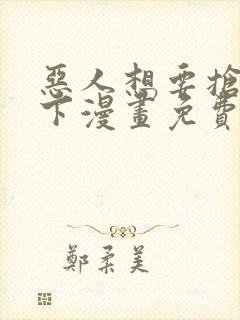 惡人想要搶
下漫畫免費
鄭柔美